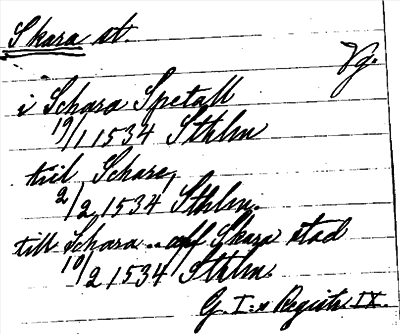 Skara st.
Vg.
i Schara Spetall
19/1 1534 Sthlm
till Schara,
2/2 1534 Sthlm.
till Schara .. aff Skara stad
10/2 1534 Sthlm.
G. I:s Registr. IX.